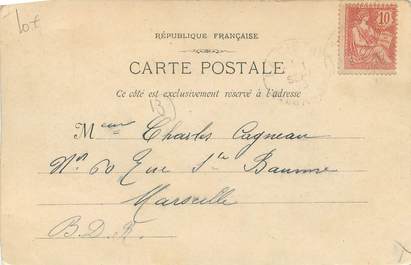 lot
RÉPUBLIQUE FRANÇAISE
10
CARTE POSTALE
Ce côté est exclusivement réservé à l'adresse
13
Meur Charles Cagneau
No 60 Rue Ste Baume
Marseille
B.D.R.